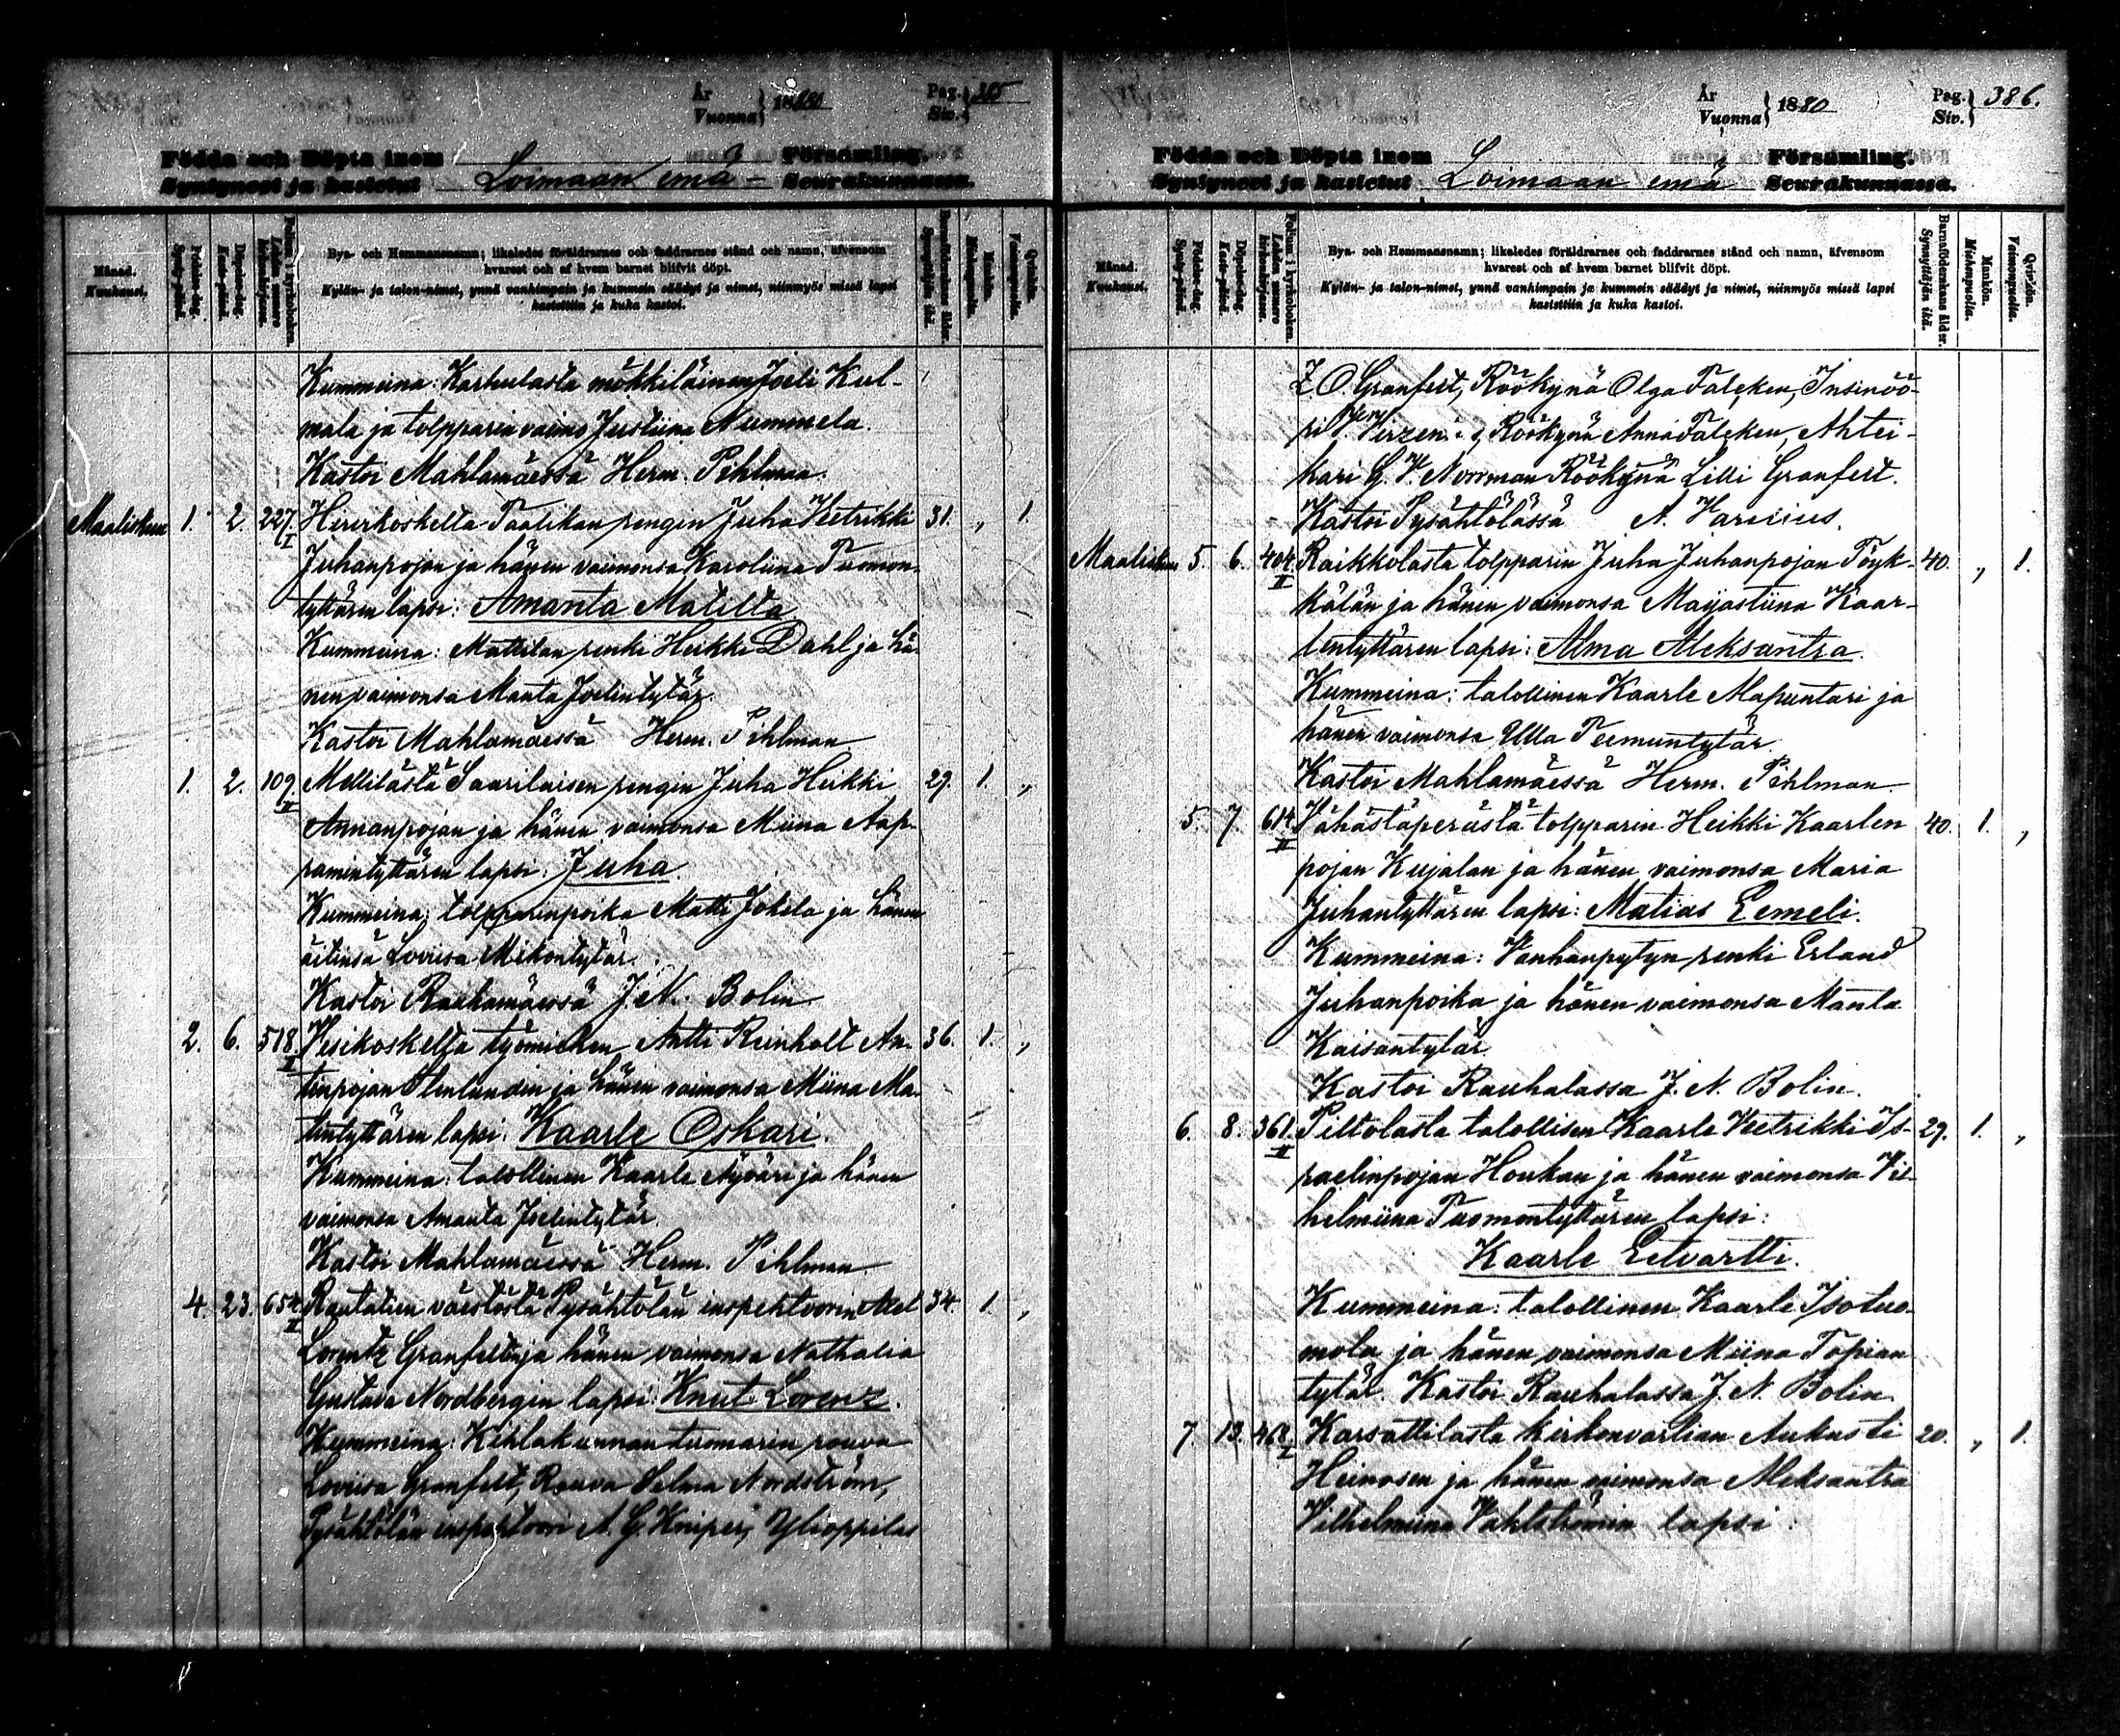 År
Vuonna } 1880
Pag.
Siv. } 385
Födda och Döpta inom Församling.
Syntyneet ja kastetut Loimaan emä- Seurakunnassa.
Månad.
Kuukausi.
Födelse-dag.
Synty-päivä.
Döpelse-dag.
Kaste-päivä.
Folium i kyrkoboken.
Lehden numero kirkonkirjassa.
Bya- och Hemmansnamn; likaledes föräldrarnes och faddrarnes stånd och namn, äfvensom
hvarest och af hvem barnet blifvit döpt.
Kylän- ja talon-nimet, ynnä vanhimpain ja kummein säädyt ja nimet, niinmyös missä lapsi
kastettiin ja kuka kastoi.
Barnaföderskans ålder.
Synnyttäjän ikä.
Mankön.
Miehenpuolia.
Qvinkön.
Vaimonpuolia.
Kummeina: Karhulasta mökkiläinen Joeli Kul-
mala ja tolpparin vaimo Justiina Nummela.
Kastoi Mahlamäessä Herm. Pihlman.
Maaliskuu 1. 2. 227. I Hirvikoskelta Taatikan rengin Juha Veetrikki 31. „ 1.
Juhanpojan ja hänen vaimonsa Karoliina Tuomon-
tyttären lapsi: Amanta Matilta
Kummeina: Mattilan renki Heikki Dahl ja hä-
nen vaimonsa Manta Joelintytär.
Kastoi Mahlamäessä Herm. Pihlman
1. 2. 109. II Mellilästä Saarilaisen rengin Juha Heikki 29. 1. „
Annanpojan ja hänen vaimonsa Miina Aap-
ramintyttären lapsi: Juha
Kummeina: tolpparinpoika Matti Jokela ja hänen
äitinsä Loviisa Mikontytär.
Kastoi Rauhamäessä J. N. Bolin
2. 6. 518. II Vesikoskelta työmiehen Antti Reinholt An- 36. 1. „
tinpojan Stenlundin ja hänen vaimonsa Miina Ma-
tintyttären lapsi: Kaarle Oskari.
Kummeina: talollinen Kaarle Nyväri ja hänen
vaimonsa Amanta Joelintytär.
Kastoi Mahlamäessä Herm. Pihlman
4. 23. 654. II Rautatien väestöstä Pysähtölän inspehtoorin Axel 34. 1. „
Lorentz Granfeltin ja hänen vaimonsa Nathalia
Gustava Nordbergin lapsi: Knut Lorenz.
Kummeina: Kihlakunnan tuomarin rouva
Loviisa Granfelt, Rouva Selma Nordström,
Pysähtölän inspehtoori A. G. Kniper, Ylioppilas
År
Vuonna } 1880
Pag.
Siv. } 386.
Födda och Döpta inom Församling.
Syntyneet ja kastetut Loimaan emä Seurakunnassa.
Månad.
Kuukausi.
Födelse-dag.
Synty-päivä.
Döpelse-dag.
Kaste-päivä.
Folium i kyrkoboken.
Lehden numero kirkonkirjassa.
Bya- och Hemmansnamn; likaledes föräldrarnes och faddrarnes stånd och namn, äfvensom
hvarest och af hvem barnet blifvit döpt.
Kylän- ja talon-nimet, ynnä vanhimpain ja kummein säädyt ja nimet, niinmyös missä lapsi
kastettiin ja kuka kastoi.
Barnaföderskans ålder.
Synnyttäjän ikä.
Mankön.
Miehenpuolia.
Qvinkön.
Vaimonpuolia.
Z O Granfelt, Röökynä Olga Falcken, Insinöö-
ri J. Virzen, Röökynä Anna Falcken, Ahtei-
hari G. V. Norrman Röökynä Lilli Granfelt.
Kastoi Pysähtölässä A. Harcius.
Maaliskuu 5. 6. 404. II Raikkolasta tolpparin Juha Juhanpojan Töyk- 40. „ 1.
kälän ja hänen vaimonsa Majastiina Kaar-
lentyttären lapsi: Alma Aleksantra.
Kummeina: talollinen Kaarle Mapuntari ja
hänen vaimonsa Ulla Teemuntytär.
Kastoi Mahlamäessä Herm. Pihlman
5. 7. 614. II Vähästäperästä tolpparin Heikki Kaarlen 40. 1. „
pojan Kujalan ja hänen vaimonsa Maria
Juhantyttären lapsi: Matias Eemeli.
Kummeina: Vanhanpytyn renki Erland
Juhanpoika ja hänen vaimonsa Manta
Kaisantytär.
Kastoi Rauhalassa J. N. Bolin.
6. 8. 361. II Piltolasta talollisen Kaarle Veetrikki Is- 29. 1. „
raelinpojan Houkan ja hänen vaimonsa Vil-
helmiina Tuomontyttären lapsi:
Kaarle Eetvartti.
Kummeina: talollinen Kaarle Isotuo-
mola ja hänen vaimonsa Miina Topian
tytär. Kastoi Rauhalassa J. N. Bolin
7. 13. 468. I Karsattilasta kirkonvartian Aukusti 20. „ 1.
Heinosen ja hänen vaimonsa Aleksantra
Vilhelmiina Vahlströmin lapsi: